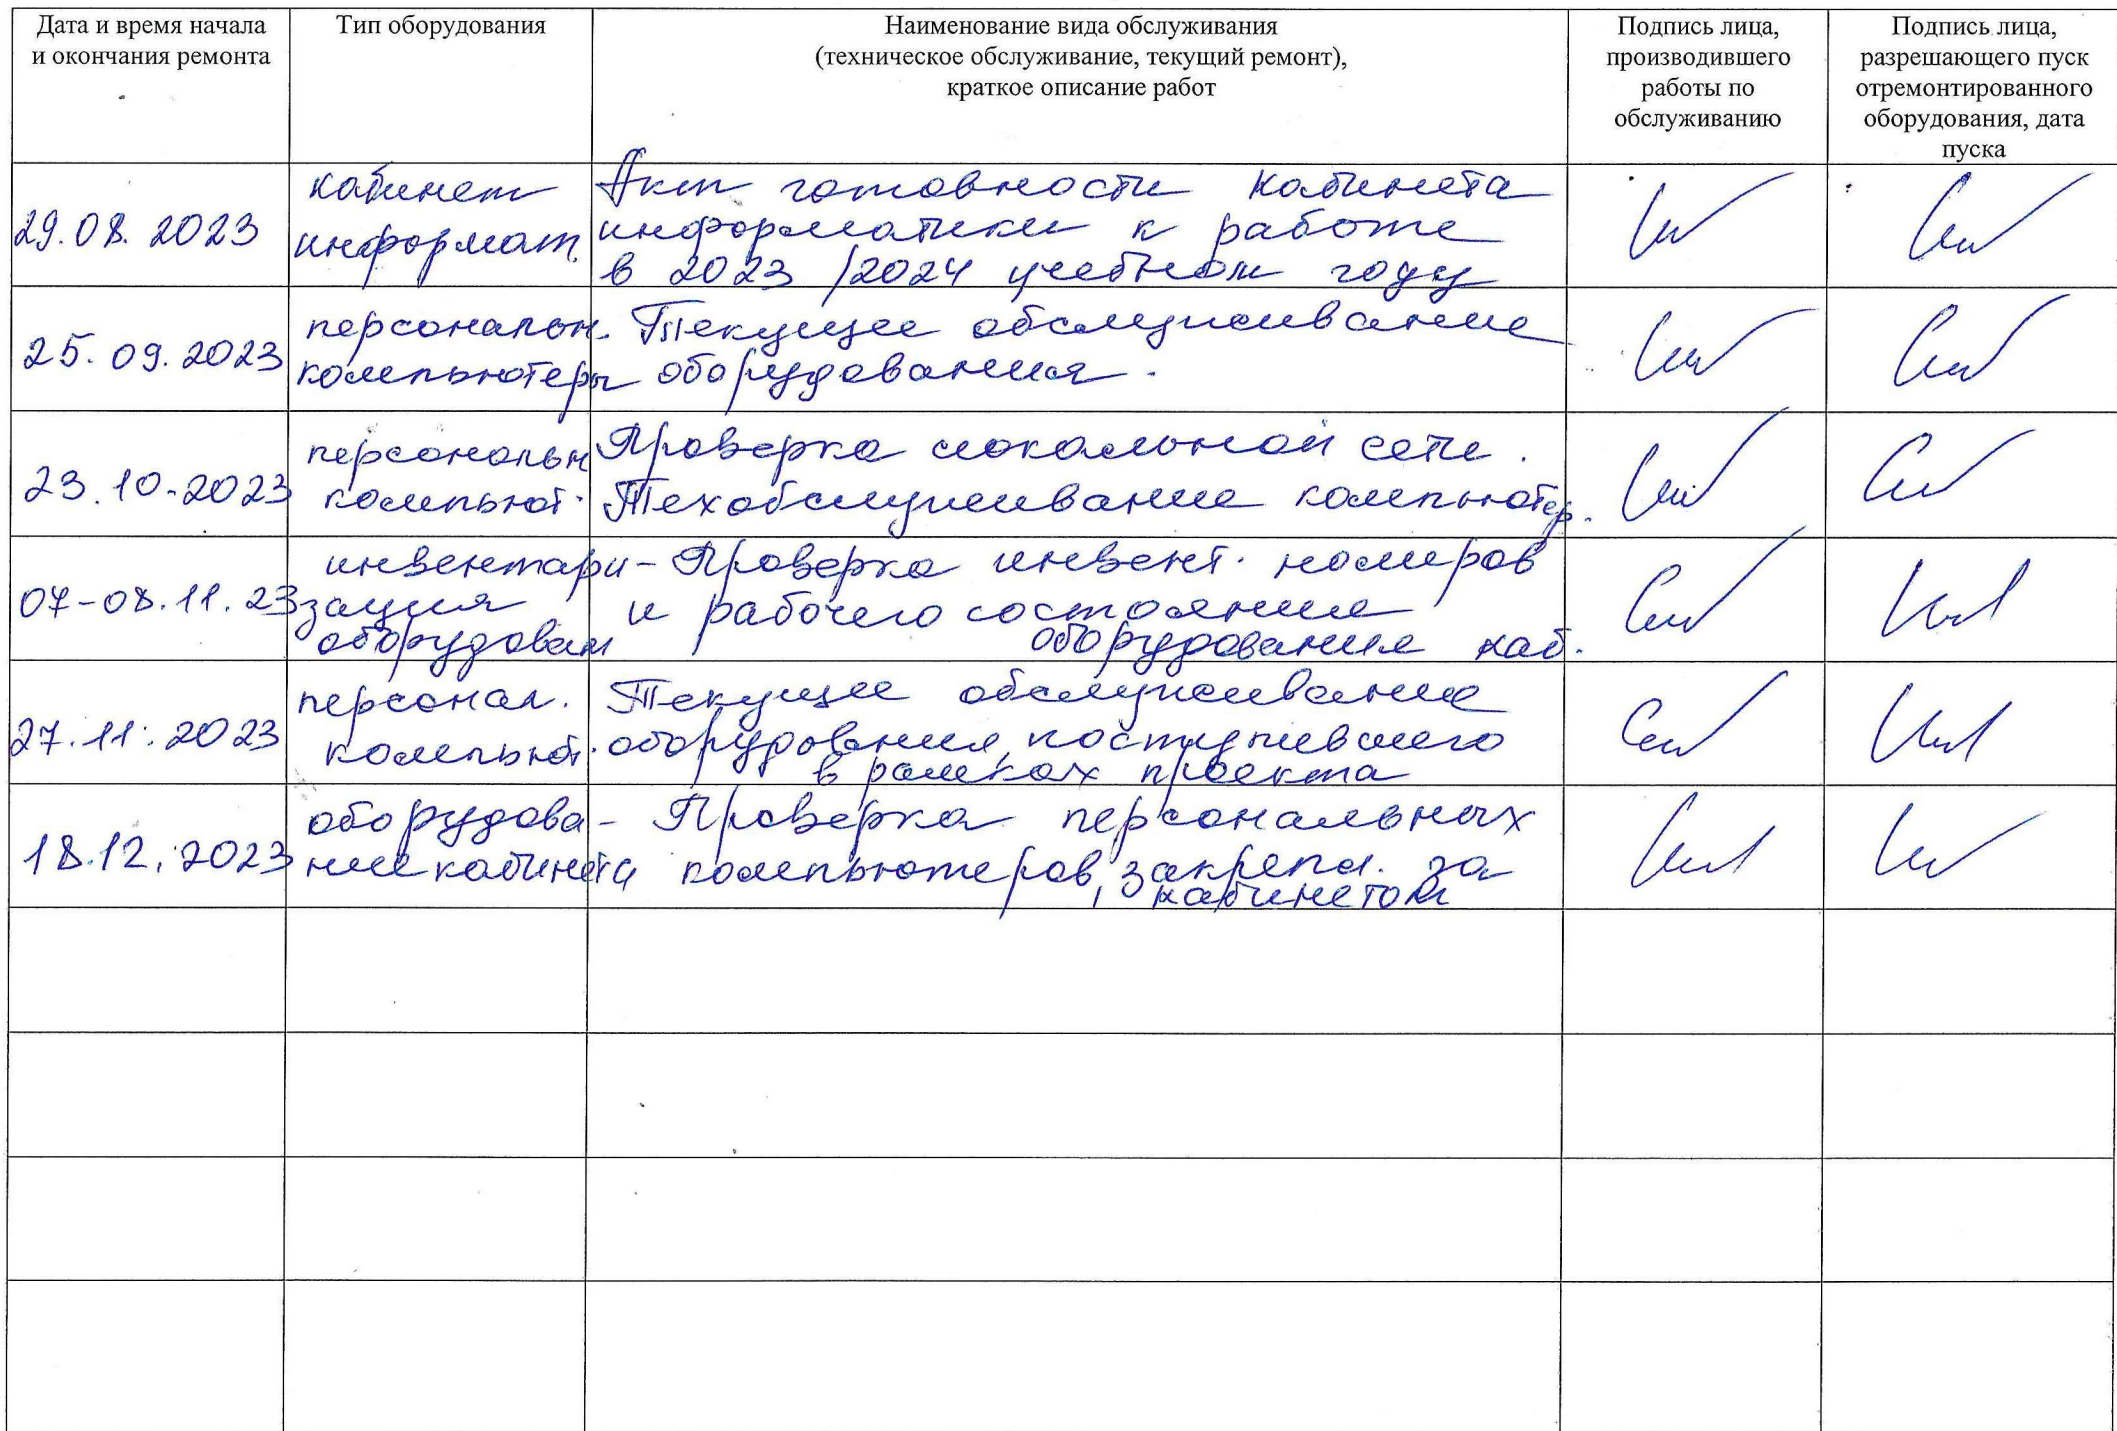 Дата и время начала
и окончания ремонта
Тип оборудования
Наименование вида обслуживания
(техническое обслуживание, текущий ремонт),
краткое описание работ
Подпись лица,
производившего
работы по
обслуживанию
Подпись лица,
разрешающего пуск
отремонтированного
оборудования, дата
пуска
29.08.2023
кабинет
информат.
Акт готовности кабинета
информатики к работе
в 2023 /2024 учебном году
25.09.2023
персональн.
компьютеры
Текущее обслуживание
оборудования.
23.10.2023
персональн
компьют.
Проверка локальной сети.
Техобслуживание компьютер.
07-08.11.23
инвентари-
зация
оборудован
Проверка инвент. номеров
и рабочего состояния
оборудования каб.
27.11.2023
персонал.
компьют.
Текущее обслуживание
оборудования, поступившего
в рамках проекта
18.12.2023
оборудова-
ние кабинета
Проверка персональных
компьютеров, закрепл. за
кабинетом